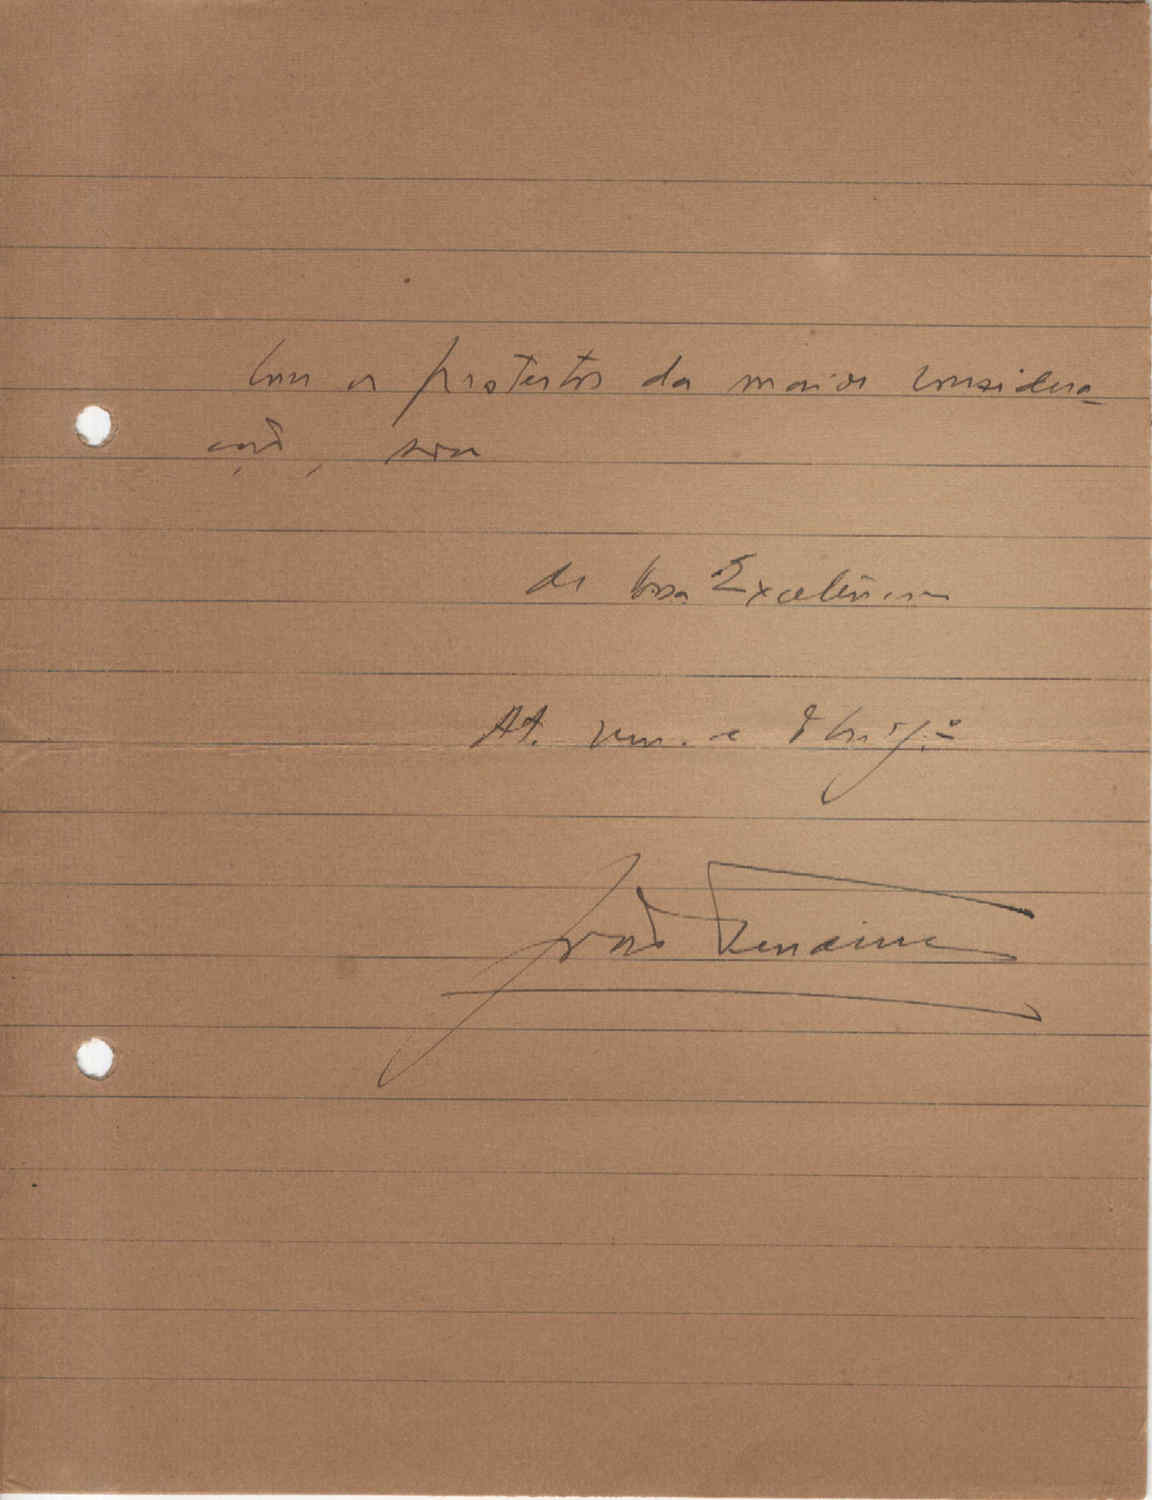 Com os protestos da maior considera-
ção, sou
de Vossa Excelência
At. ven. e Obrig.º
João